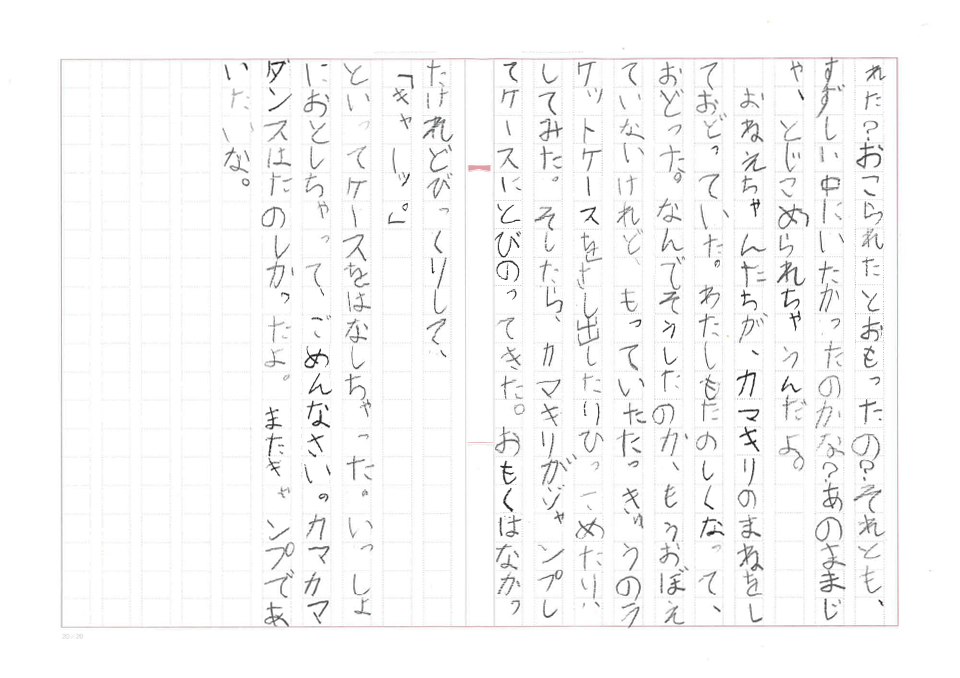 れた？おこられたとおもったの？それとも、
すずしい中にいたかったのかな？あのままじ
ゃ、とじこめられちゃうんだよ。
おねえちゃんたちが、カマキリのまねをし
ておどっていた。わたしもたのしくなって、
おどった。なんでそうしたのか、もうおぼえ
ていないけれど、もっていたたっきゅうのラ
ケットケースをさし出したりひっこめたり、
してみた。そしたら、カマキリがジャンプし
てケースにとびのってきた。おもくはなかっ
たけれどびっくりして、
「キャーッ。」
といってケースをはなしちゃった。いっしょ
におとしちゃって、ごめんなさい。カマカマ
ダンスはたのしかったよ。またキャンプであ
いたいな。
20×20